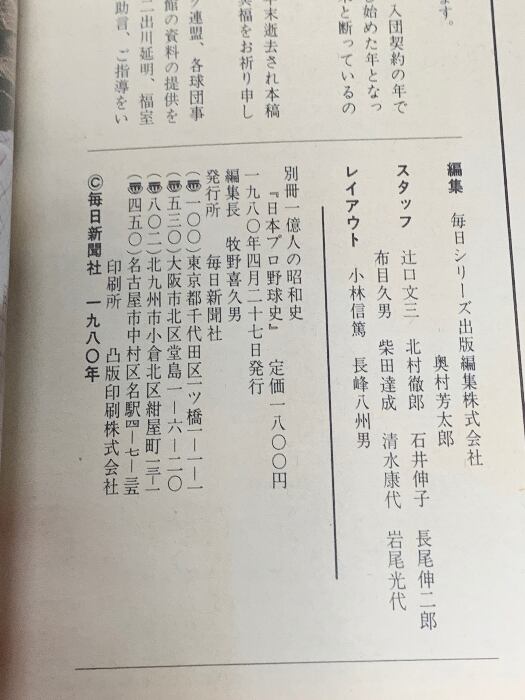 ます。
入団契約の年で
し始めた年となっ
と断っているの
年末逝去され本稿
冥福をお祈り申し
連盟、各球団事
館の資料の提供を
二出川延明、福室
助言、ご指導をい
編集　毎日シリーズ出版編集株式会社
奥村芳太郎
スタッフ　辻口文三　北村徹郎　石井伸子　長尾伸二郎
布目久男　柴田達成　清水康代　岩尾光代
レイアウト　小林信篤　長峰八州男
別冊一億人の昭和史
『日本プロ野球史』　定価一八〇〇円
一九八〇年四月二十七日発行
編集長　牧野喜久男
発行所　毎日新聞社
(〠一〇〇)東京都千代田区一ツ橋一ー一ー一
(〠五三〇)大阪市北区堂島一ー六ー二〇
(〠八〇二)北九州市小倉北区紺屋町一三ー一
(〠四五〇)名古屋市中村区名駅四ー七ー三五
印刷所　凸版印刷株式会社
©毎日新聞社　一九八〇年